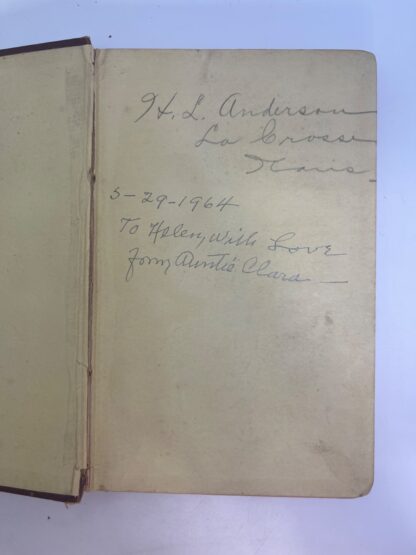 H. L. Anderson
La Crosse
Kans.
3-29-1964
To Helen, with Love
from Auntie Clara —